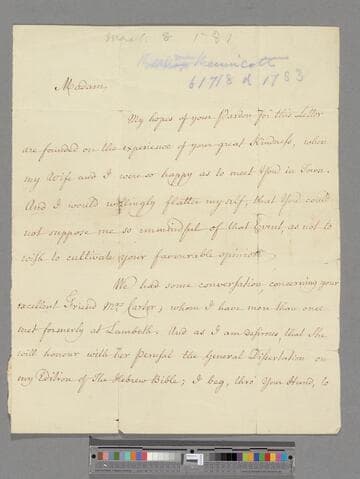 March 8 1781
Kennicott
b 1718 d 1783
Madam,
My hopes of your Pardon for this Letter
are founded on the experience of your great Kindness, when
my Wife and I were so happy as to meet You in Town.
And I would willingly flatter my self, that You could
not suppose me so unmindful of that Event, as not to
wish to cultivate your favourable opinion.
We had some conversation concerning your
excellent Friend Mrs Carter, whom I have more than once
met formerly at Lambeth. And as I am desirous, that She
will honour with her perusal the General Dissertation on
my Edition of The Hebrew Bible; I beg, thro' Your Hand, to